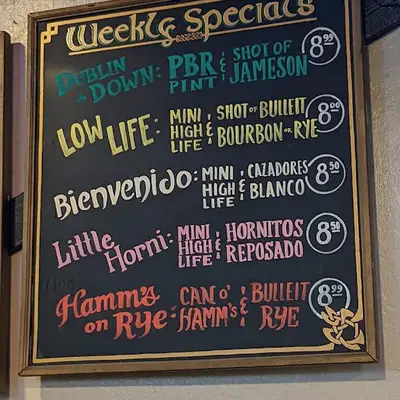 Weekly Specials
DUBLIN n DOWN: PBR PINT & SHOT OF JAMESON 8.99
LOW LIFE: MINI HIGH LIFE & SHOT OF BULLEIT BOURBON OR RYE 8.00
Bienvenido: MINI HIGH LIFE & CAZADORES BLANCO 8.50
Little Horni: MINI HIGH LIFE & HORNITOS REPOSADO 8.50
Hamm's on Rye: CAN O' HAMM'S & BULLEIT RYE 8.99